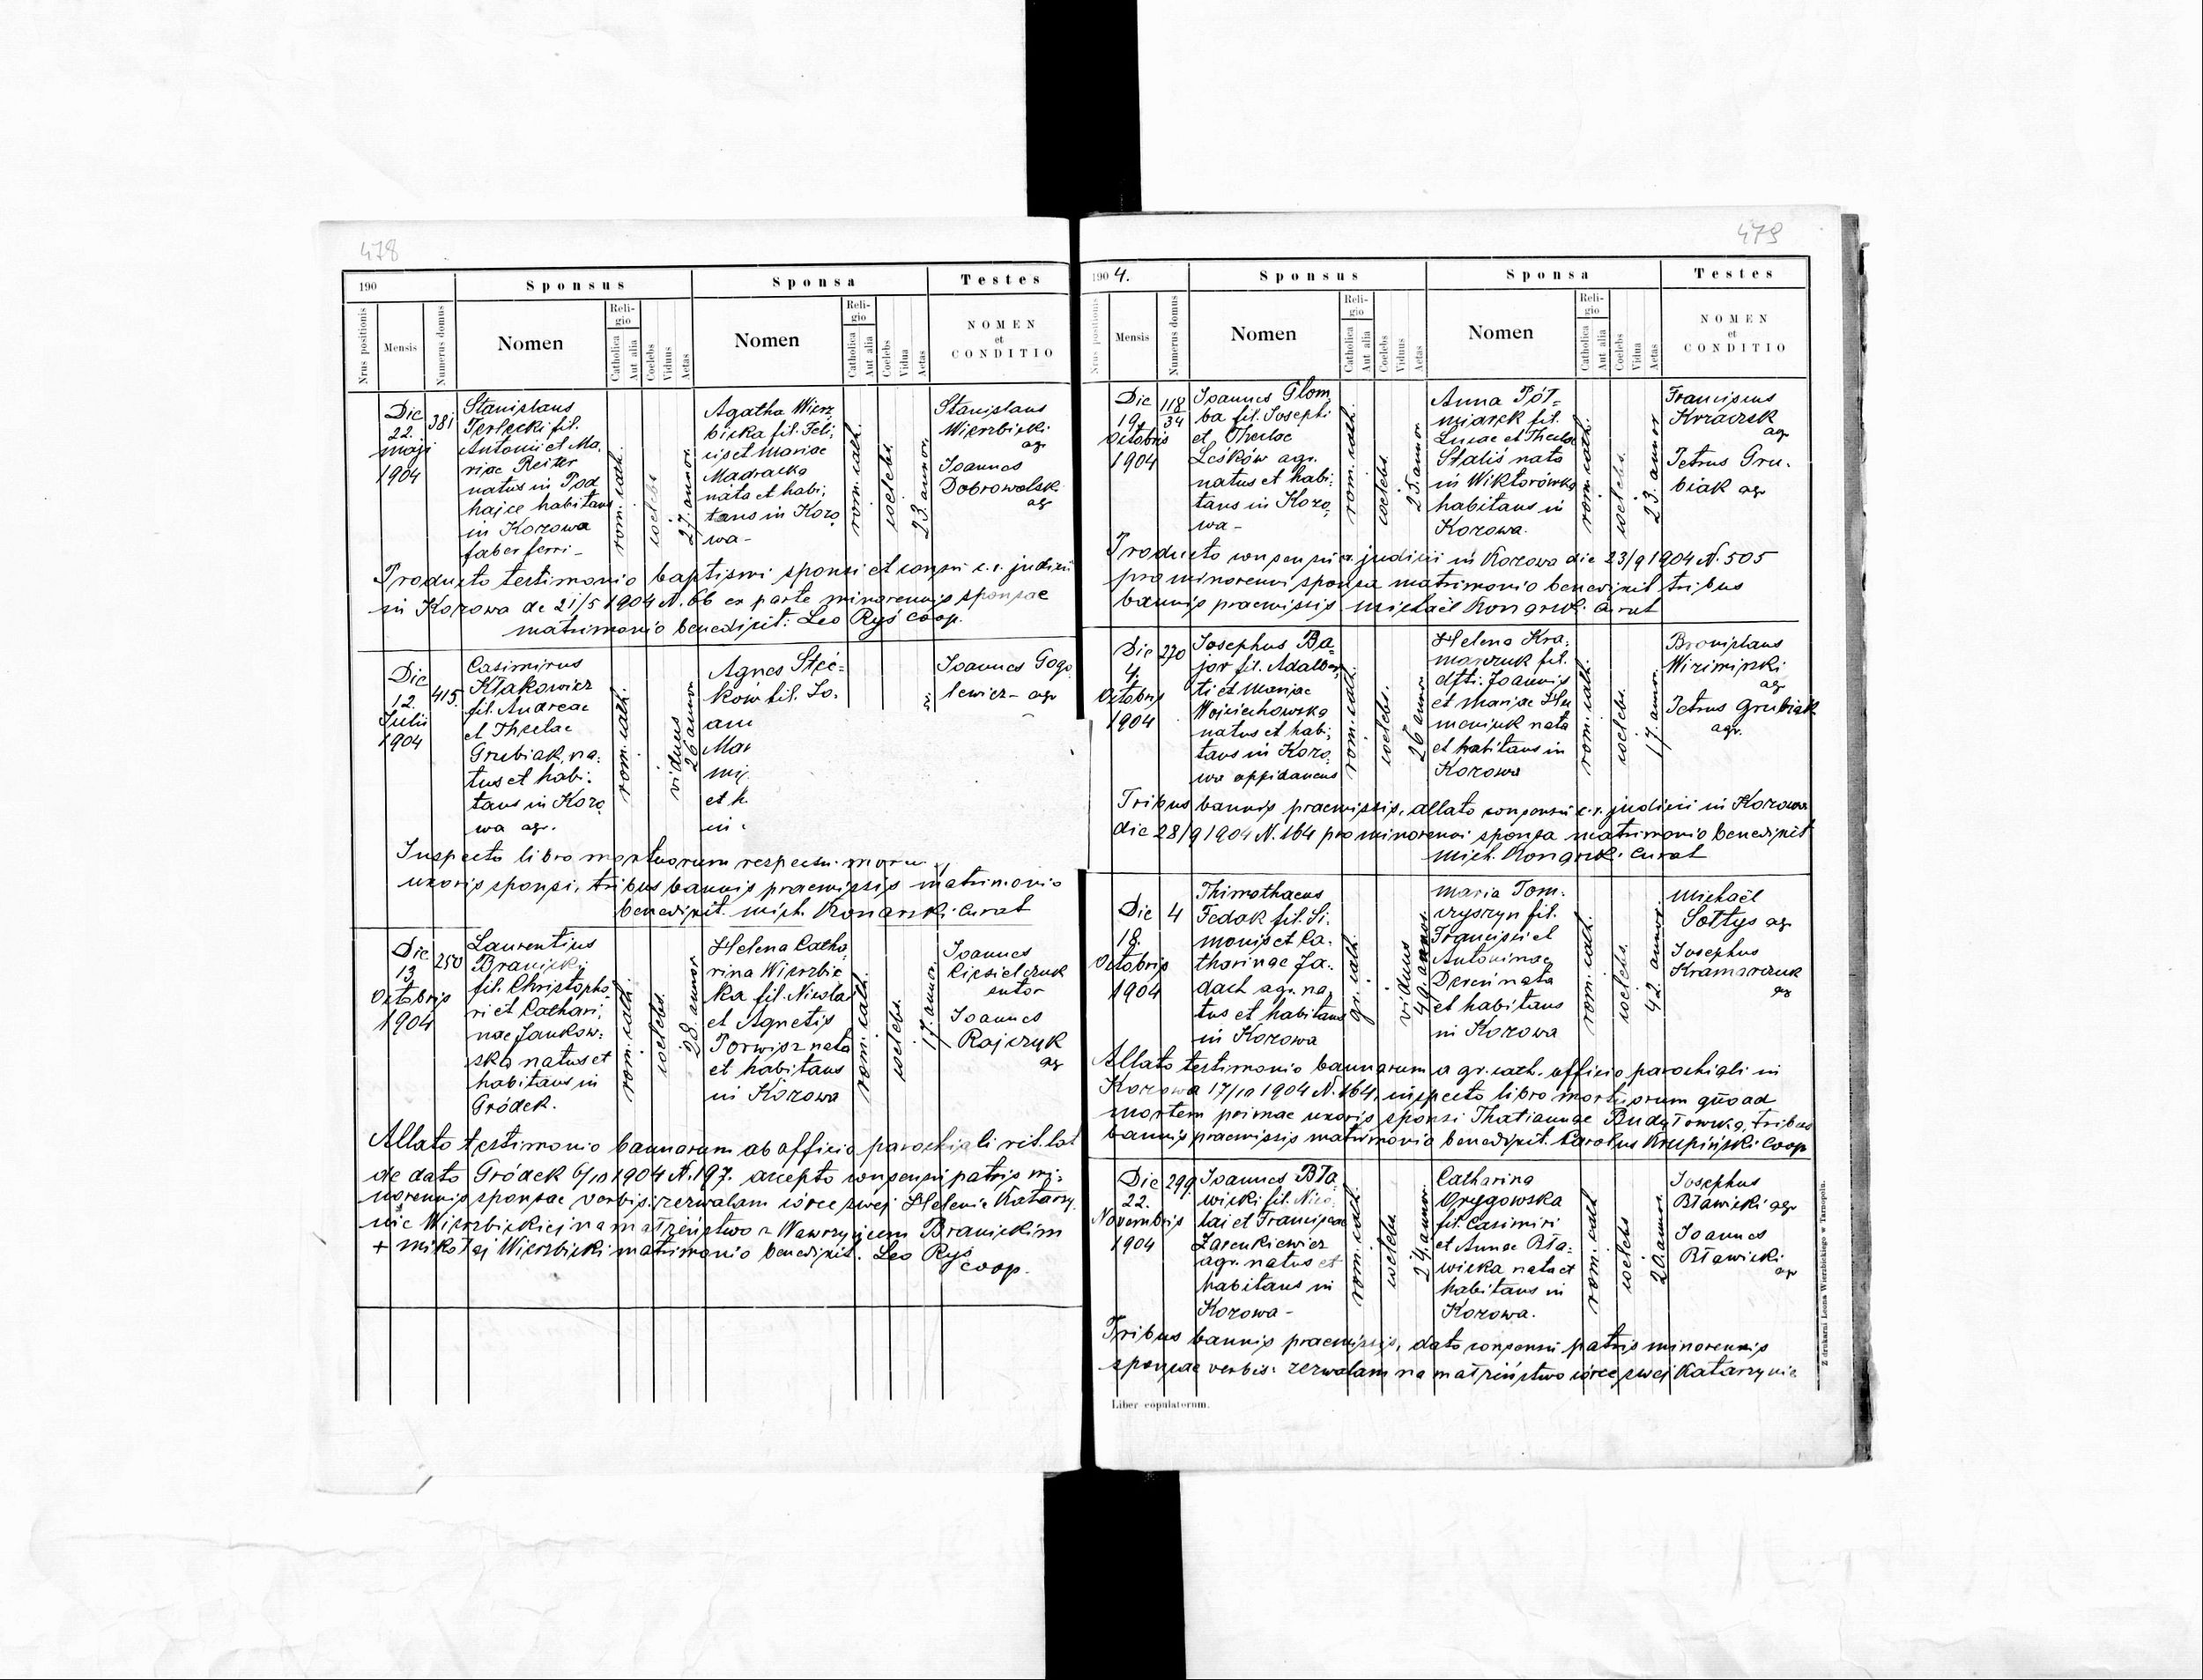 478
190
Sponsus
Sponsa
Testes
Nrus positionis
Mensis
Numerus domus
Nomen
Religio
Catholica
Aut alia
Coelebs
Viduus
Aetas
Nomen
Religio
Catholica
Aut alia
Coelebs
Vidua
Aetas
NOMEN
et
CONDITIO
Die
22.
maji
1904
381
Stanislaus
Terlecki fil.
Antonii et Ma,
riae Reiter
natus in Pod
hajce habitans
in Kozowa
faber ferri -
rom. cath.
coelebs
27. annor.
Agatha Wierz
bicka fil. Feli,
cis et Mariae
Madracka
nata et habi,
tans in Kozo,
wa -
rom. cath.
coelebs.
23. annor.
Stanislaus
Wierzbicki
agr
Joannes
Dobrowolsk
agr
Producto testimonio baptismi sponsi et consen c.r. judicii
in Kozowa de 21/5 1904 N. 66 ex parte minorennis sponsae
matrimonio benedixit: Leo Ryś coop.
Die
12.
Julii
1904
415.
Casimirus
Kłakowicz
fil. Andreae
et Theclae
Grubiak, na,
tus et habi,
tans in Kozo,
wa agr.
rom. cath.
viduus
26 annor
Agnes
ków fil. Jo.
ann
Mar
et h
in
Joannes Gogo
lewicz - agr
Inspecto libro mortuorum respectu
uxoris sponsi, tribus bannis praemissis matrimonio
benedixit. Mich. Konarski. Curat
Die
13.
Octobris
1904
250
Laurentius
Branicki
fil. Christopho,
ri et Cathari,
nae Jankow:
ska natus et
habitans in
Gródek.
rom. cath.
coelebs.
28. annor
Helena Catha,
rina Wierzbic
ka fil. Nicolai
et Agnetis
Porwisz nata
et habitans
in Kozowa
rom. cath.
coelebs.
17. annor.
Joannes
Ciesielczuk
sutor
Joannes
Rajczyk
agr
Allato testimonio bannorum ab officio parochiali rit. lat
de dato Gródek 6/10 1904 N. 197. accepto consensu patris mi:
norennis sponsae verbis: zezwalam córce swej Helenie Katarzy
nie Wierzbickiej na małżeństwo z Wawrzyńcem Branickim
+ Mikołaj Wierzbicki matrimonio benedixit. Leo Ryś
coop.
479
1904.
Sponsus
Sponsa
Testes
Nrus positionis
Mensis
Numerus domus
Nomen
Religio
Catholica
Aut alia
Coelebs
Viduus
Aetas
Nomen
Religio
Catholica
Aut alia
Coelebs
Vidua
Aetas
NOMEN
et
CONDITIO
Die
19.
Octobris
1904
118
34
Joannes Głom,
ba fil. Josephi
et Theclae
Leśków agr.
natus et habi,
tans in Kozo,
wa -
rom. cath.
coelebs.
25. annor
Anna Pół=
miarek fil.
Lucae et Theclae
Staliś nata
in Wiktorówka
habitans in
Kozowa.
rom. cath.
coelebs.
23. annor
Franciscus
Krzaczek
agr
Petrus Gru,
biak agr
Producto consensu c.r. judicii in Kozowa die 23/9 1904 N. 505
pro minorenni sponsa matrimonio benedixit tribus
bannis praemissis Michael Konarski. Curat
Die
4.
Octobris
1904
270
Josephus Ba,
jor fil. Adalber,
ti et Mariae
Wojciechowska
natus et habi,
tans in Kozo,
wa oppidaneus
rom. cath.
coelebs.
26 annor
Helena Kra,
marczuk fil.
dfti. Joannis
et Mariae Hu
meniuk nata
et habitans in
Kozowa
rom. cath.
coelebs.
17. annor.
Bronislaus
agr
Petrus Grubiak
agr.
Tribus bannis praemissis, allato consensu c.r. judicii in Kozowa
die 28/9 1904 N. 164 pro minorenni sponsa matrimonio benedixit
Mich. Konarski. Curat
Die
18.
Octobris
1904
4
Thimothaeus
Fedak fil. Si,
monis et Ca,
tharinae Ja,
dach agr. na,
tus et habitans
in Kozowa
gr. cath.
viduus
49. annor.
Maria Tom,
czyszyn fil.
Francisci et
Antoninae
Dereń nata
et habitans
in Kozowa
rom. cath.
coelebs.
42. annor.
Michaël
Sołtys agr
Josephus
Kramarczuk
agr
Allato testimonio bannorum a gr. cath. officio parochiali in
Kozowa 17/10 1904 N. 164, inspecto libro mortuorum quoad
mortem primae uxoris sponsi Thatiannae Budyłowska, tribus
bannis praemissis matrimonio benedixit. Carolus Krupiński Coop
Die
22.
Novembris
1904
299
Joannes Bła,
wicki fil. Nico,
lai et Franciscae
Zarenkiewicz
agr. natus et
habitans in
Kozowa -
rom. cath.
coelebs.
24. annor.
Catharina
Grygowska
fil. Casimiri
et Annae Bła:
wicka nata et
habitans in
Kozowa.
rom. cath.
coelebs
20. annor.
Josephus
Bławicki agr
Joannes
Bławicki
agr
Tribus bannis praemissis, dato consensu patris minorennis
sponsae verbis: zezwalam na małżeństwo córce swej Katarzynie
Liber copulatorum.
Z drukarni Leona Wierzbickiego w Tarnopolu.